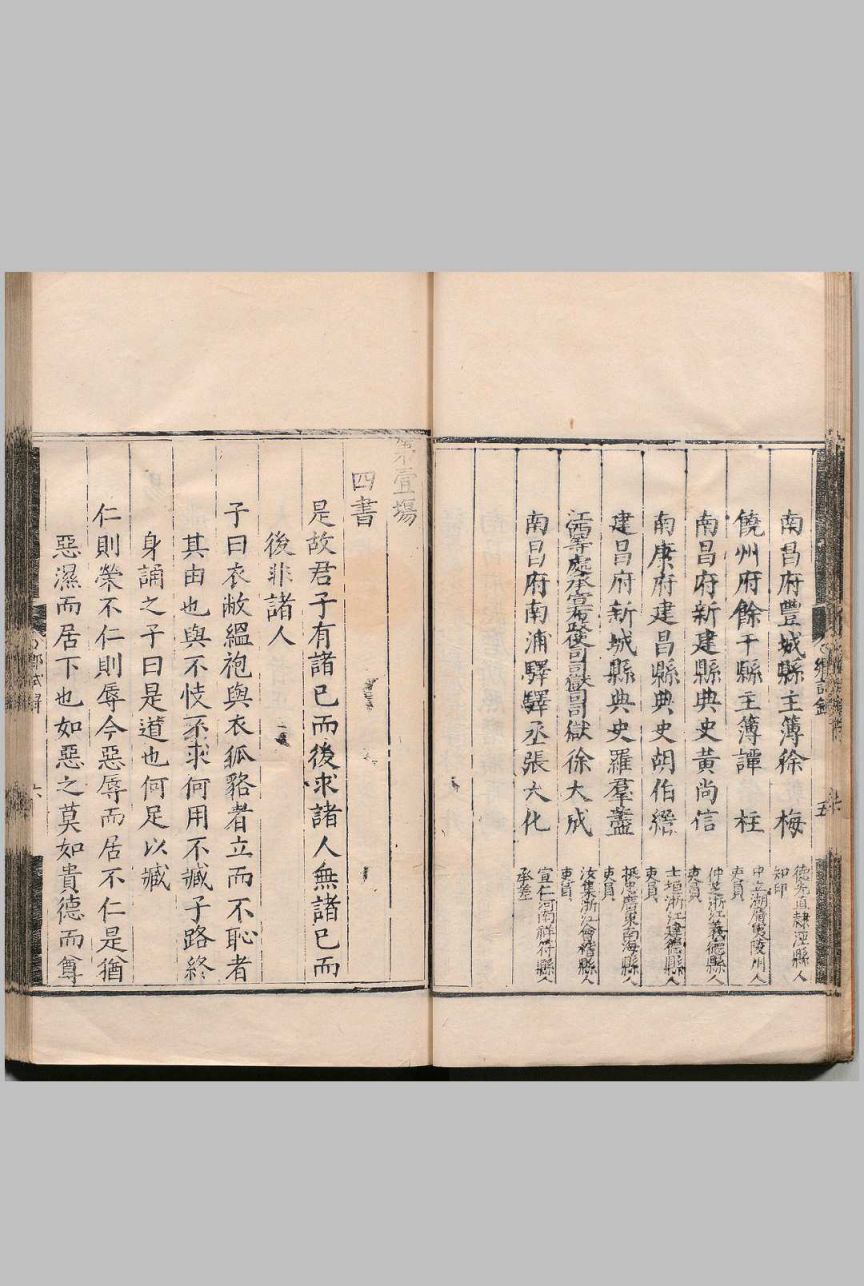 南昌府豐城縣主簿徐 梅 德先直隸涇縣人 知印
饒州府餘干縣主簿譚 柱 中立湖廣夷陵州人 吏員
南昌府新建縣典史黃尚信 仲孚浙江義德縣人 吏員
南康府建昌縣典史胡伯縉 士垣浙江建德縣人 吏員
建昌府新城縣典史羅羣盡 廣東南海縣人 吏員
江西等處承宣布政使司司獄司司獄徐大成 汝集浙江會稽縣人 吏員
南昌府南浦驛驛丞張大化 宣仁河南祥符縣人 承差
第壹場
四書
是故君子有諸已而後求諸人無諸已而
後非諸人
子曰衣敝縕袍與衣狐貉者立而不恥者
其由也與不忮不求何用不臧子路終
身誦之子曰是道也何足以臧
仁則榮不仁則辱今惡辱而居不仁是猶
惡濕而居下也如惡之莫如貴德而尊